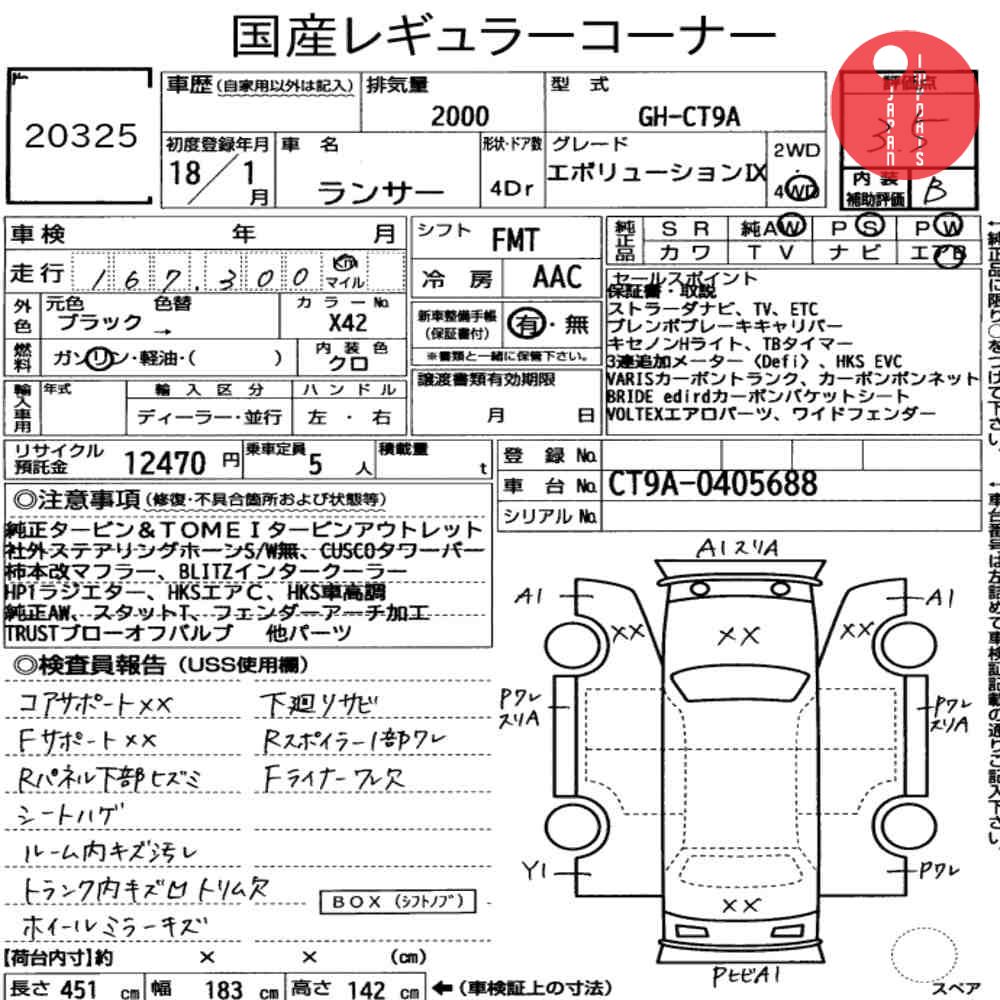 国産レギュラーコーナー
20325
車歴 (自家用以外は記入)
排気量
2000
型 式
GH-CT9A
評価点
3.5
JAPAN IMPORTS
初度登録年月
18/1月
車 名
ランサー
形状・ドア数
4Dr
グレード
エボリューションⅨ
2WD
・
4WD
内 装
補助評価
B
車検 年 月
走行 167,300 Km マイル
シフト FMT
冷 房 AAC
純正品
S R 純AW P S P W
カ ワ T V ナ ビ エアB
外色
元色 色替
ブラック →
カ ラ ー No.
X42
燃料
ガソリン・軽油・( )
内 装 色
クロ
新車整備手帳
(保証書付)
有・無
※書類と一緒に保管下さい。
セールスポイント
保証書・取説
ストラーダナビ、TV、ETC
ブレンボブレーキキャリパー
キセノンHライト、TBタイマー
3連追加メーター〈Defi〉、HKS EVC
VARISカーボントランク、カーボンボンネット
BRIDE edirdカーボンバケットシート
VOLTEXエアロパーツ、ワイドフェンダー
輸入車用
年式
輸 入 区 分
ディーラー・並行
ハ ン ド ル
左 ・ 右
譲渡書類有効期限
月 日
リサイクル
預託金
12470 円
乗車定員
5 人
積載量
t
登 録 No.
車 台 No. CT9A-0405688
シリアル No.
◎注意事項(修復・不具合箇所および状態等)
純正タービン&TOMEIタービンアウトレット
社外ステアリングホーンS/W無、CUSCOタワーバー
柿本改マフラー、BLITZインタークーラー
HP1ラジエター、HKSエアC、HKS車高調
純正AW、スタットT、フェンダーアーチ加工
TRUSTブローオフバルブ 他パーツ
◎検査員報告(USS使用欄)
コアサポートXX 下廻リサビ
FサポートXX Rスポイラー1部ワレ
Rパネル下部ヒズミ Fライナーワレ欠
シートハゲ
ルーム内キズ汚レ
トランク内キズ凹 トリム欠
BOX (シフトノブ)
ホイールミラーキズ
A1スリA
A1
A1
XX
XX
XX
Pワレ
スリA
Pワレ
スリA
Y1
Pワレ
XX
PヒビA1
スペア
【荷台内寸】約 × × (cm)
長さ 451 cm 幅 183 cm 高さ 142 cm ←(車検証上の寸法)
←純正品に限り○をつけて下さい。
←車台番号は左詰めで車検証記載の通りご記入下さい。